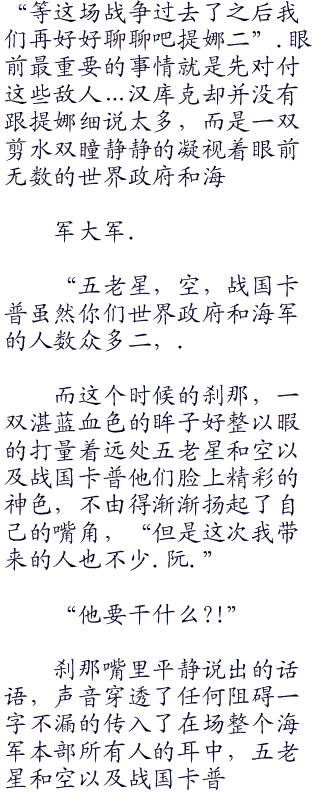 “等这场战争过去了之后我
们再好好聊聊吧提娜二”.眼
前最重要的事情就是先对付
这些敌人...汉库克却并没有
跟提娜细说太多，而是一双
剪水双瞳静静的凝视着眼前
无数的世界政府和海
军大军.
“五老星，空，战国卡
普虽然你们世界政府和海军
的人数众多二，.
而这个时候的刹那，一
双湛蓝血色的眸子好整以暇
的打量着远处五老星和空以
及战国卡普他们脸上精彩的
神色，不由得渐渐扬起了自
己的嘴角，“但是这次我带
来的人也不少.阮.”
“他要干什么?!”
刹那嘴里平静说出的话
语，声音穿透了任何阻碍一
字不漏的传入了在场整个海
军本部所有人的耳中，五老
星和空以及战国卡普